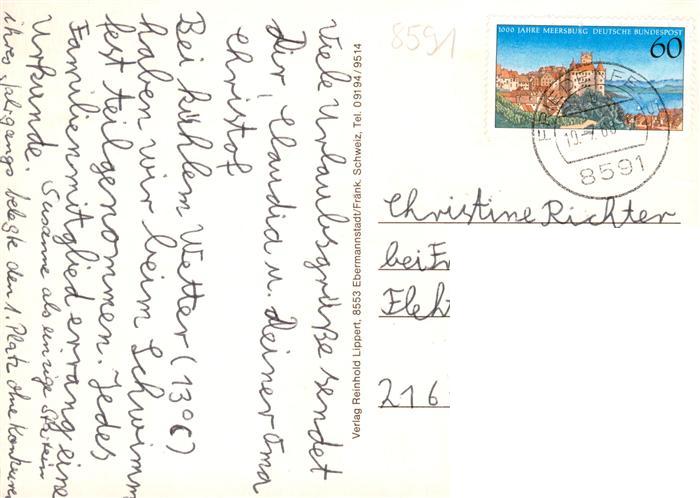 Viele Urlaubsgrüße sendet
Dir, Claudia u. Deiner Oma
Christof
Bei kühlem Wetter (13°C)
haben wir beim Schwimm
fest teilgenommen. Jedes
Familienmitglied errang eine
Urkunde. Susanne als einzige
ihres Jahrgangs belegte den 1. Platz ohne
Verlag Reinhold Lippert, 8553 Ebermannstadt/Fränk. Schweiz, Tel. 09194/9514
8591
1000 JAHRE MEERSBURG DEUTSCHE BUNDESPOST
60
8591
Christine Richter
bei
216